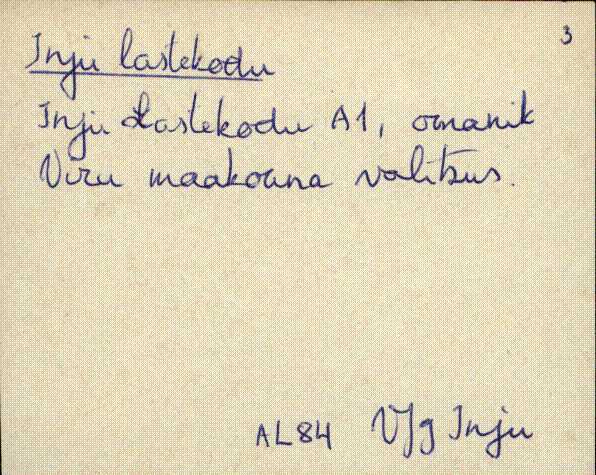 3
Inju lastekodu
Inju Lastekodu A1, omanik
Viru maakonna valitsus.
AL84 V/g Inju